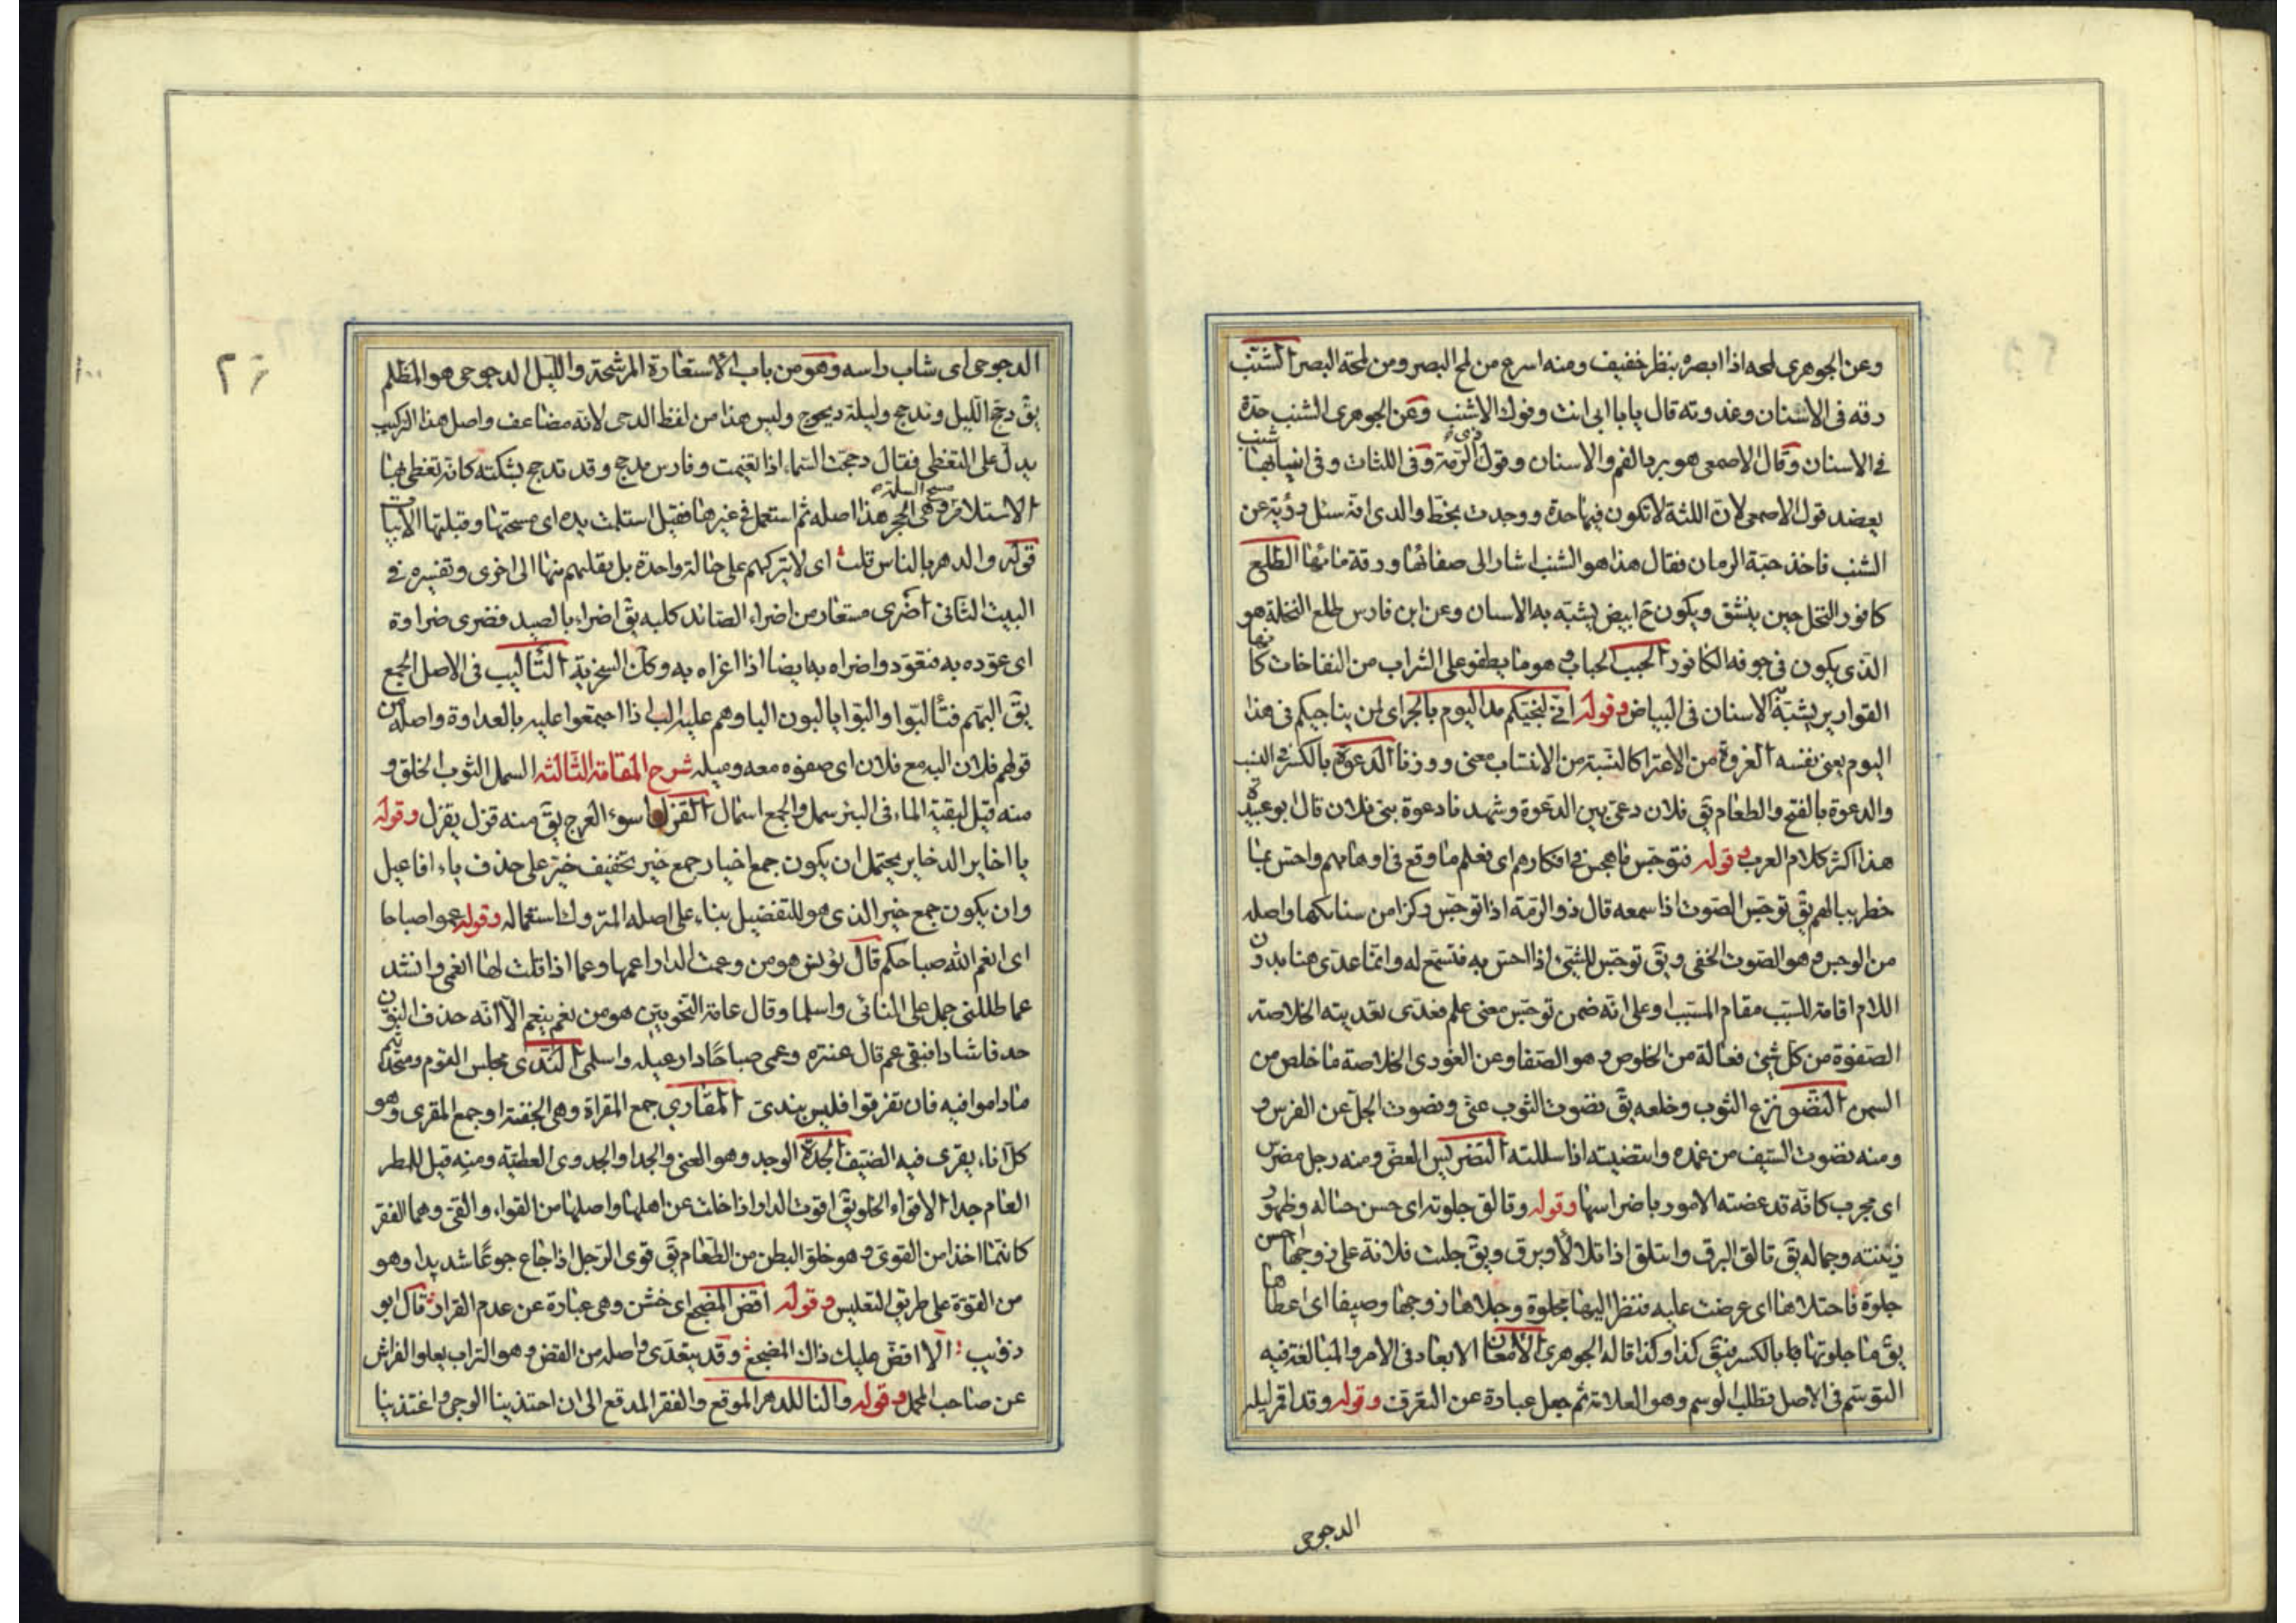 وعن الجوهرى لمحه اذا ابصره بنظر خفيف ومنه اسرع من لمح البصر ومن لمحة البصر الشنب
رقه فى الاسنان وعذوبته قال يا بابى انت وفوك الاشنب وعن الجوهرى الشنب حدة
فى الاسنان وقال الاصمعى هو برد الفم والاسنان وقول ذى الرمة وفى اللثات وفى انيابها شنب
يعضد قول الاصمعى لان اللثة لا تكون فيها حدة ووجدت بخط والدى انه سئل رؤبة عن
الشنب فاخذ حبة الرمان فقال هذا هو الشنب اشار الى صفائها ورقة مائها الطلع
كافور النخل حين ينشق ويكون ح ابيض يشبه به الاسنان وعن ابن فارس طلع النخلة هو
الذى يكون فى جوفه الكافور الحبب الحباب وهو ما يطفو على الشراب من النفاخات كانها
القوارير يشبه به الاسنان فى البياض وقوله انى لنجيكم مذ اليوم بالجر اى لمن يناجيكم فى هذا
اليوم يعنى نفسه العزوة من الاعتزا كالنسبة من الانتساب معنى ووزنا الدعوة بالكسر فى النسب
والدعوة بالفتح والطعام يق فلان دعى بين الدعوة وشهدنا دعوة بنى فلان قال ابو عبيدة
هذا اكثر كلام العرب وقوله فتوجس ما هجس فى افكارهم اى فعلم ما وقع فى اوهامهم واحس بما
خطر ببالهم يق توجس الصوت اذا سمعه قال ذو الرمة اذا توجس ركزا من سنابكها واصله
من الوجس وهو الصوت الخفى ويق توجس للشئ اذا احس به فتسمع له وانما عدى هنا بدون
اللام اقامة للسبب مقام المسبب او على انه ضمن توجس معنى علم فعدى تعديته الخلاصة
الصفوة من كل شئ فعالة من الخلوص وهو الصفا وعن الغورى الخلاصة ما خلص من
السمن النضو نزع الثوب وخلعه يق نضوت الثوب عنى ونضوت الجل عن الفرس و
ومنه نضوت السيف من غمده وانتضيته اذا سللته التضريس العض ومنه رجل مضرس
اى مجرب كانه قد عضته الامور باضراسها وقوله وتالق جلوته اى حسن حاله وظهور
زينته وجماله يق تالق البرق وائتلق اذا تلالا وبرق ويق جليت فلانة على زوجها احسن
جلوة فاجتلاها اى عرضت عليه فنظر اليها مجلوة وجلاها زوجها وصيفا اى اعطاها
يق ما جلوتها بالكسر فيق كذا وكذا قاله الجوهرى الامعان الابعاد فى الامر والمبالغة فيه
التوسم فى الاصل تطلب الوسم وهو العلامة ثم جعل عبارة عن التعرف وقوله وقد اقمر ليله
الدجوجى
٢٦
الدجوجى اى شاب راسه وهو من باب الاستعارة المرشحة والليل الدجوجى هو المظلم
يق دجج الليل وتدجج وليلة ديجوج وليس هذا من لفظ الدجى لانه مضاعف واصل هذا التركيب
يدل على التغطى فقال دججت السماء اذا تغيمت وفارس مدجج وقد تدجج بشكته كانه تغطى بها
الاستلام مسح السلمة وهى الحجر هذا اصله ثم استعمل فى غيرها فقيل استلمت يده اى مسحتها وقبلتها الابيات
قوله والدهر بالناس قلب اى لا يتركهم على حالة واحدة بل يقلبهم منها الى اخرى وتفسيره فى
البيت الثانى اضرى مستعار من اضراء الصائد كلبه يق اضراه بالصيد فضرى ضراوة
اى عوده به فتعود واضراه به ايضا اذا اغراه به وكل السخرية التاليب فى الاصل الجمع
يق البهم فتالبوا والبوا يالبون البا وهم عليه الب اذا اجتمعوا عليه بالعداوة واصله من
قولهم فلان البه مع فلان اى صفوه معه وميله شرح المقامة الثالثه السمل الثوب الخلق و
منه قيل لبقية الماء فى البئر سمل والجمع اسمال القزل اسوء العرج يق منه قزل يقزل وقوله
يا اخاير الذخاير يحتمل ان يكون جمع اخيار جمع خير تخفيف خير على حذف ياء افاعيل
وان يكون جمع خير الذى هو للتفضيل بناء على اصله المتروك استعماله وقوله عموا صباحا
اى انعم الله صباحكم قال يونس هو من وعمت الدار اعمها وعما اذا قلت لها انعمى وانشد
عما طللى جمل على النائى واسلما وقال عامة النحويين هو من نعم ينعم الا انه حذف النون
حذفا شاذا فبقى عم قال عنتره وعمى صباحا دار عبله واسلمى الندى مجلس القوم ومتحدثهم
ماداموا فيه فان تفرقوا فليس بندى المقارى جمع المقراة وهى الجفنة او جمع المقرى وهو
كل اناء يقرى فيه الضيف الجدة الوجد وهو الغنى والجدا والجدوى العطية ومنه قيل للمطر
العام جدا الاقواء الخلو يق اقوت الدار اذا خلت عن اهلها واصلها من القواء والقى وهما القفر
كانما اخذا من القوى وهو خلق البطن من الطعام يق قوى الرجل اذا جاع جوعا شديدا وهو
من القوة على طريق التعليس وقوله اقض المضجع اى خشن وهى عبارة عن عدم القرار قال ابو
ذؤيب الا اقض عليك ذاك المضجع وقد يتعدى واصله من القضض وهو التراب يعلو الفراش
عن صاحب المجمل وقوله والنا للدهر الموقع والفقر المدقع الى ان احتذينا الوجى واغتذينا